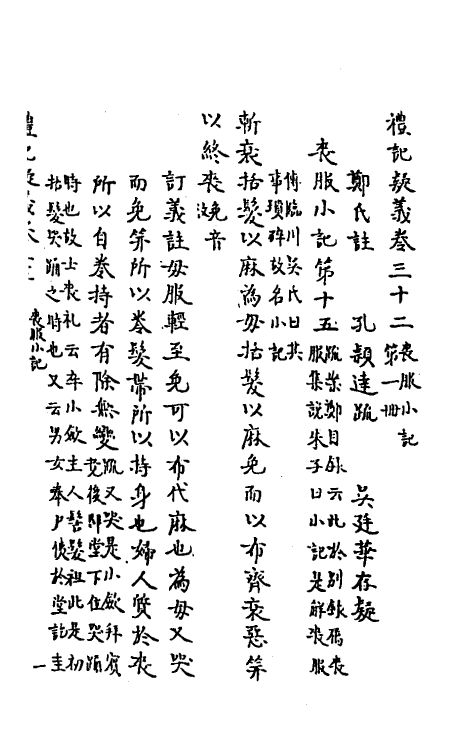 禮記疑義卷三十二喪服小記第一冊
鄭氏註 孔穎達疏 吳廷華存疑
喪服小記第十五疏案鄭目録云此於別録屬喪服集說朱子曰小記是解喪服
傳臨川吳氏曰其事瑣碎故名小記
斬衰括髮以麻為母括髮以麻免而以布齊衰惡笄
以終喪免音
訂義註母服輕至免可以布代麻也為母又哭
而免笄所以卷髮帶所以持身也婦人質於喪
所以自卷持者有除無變疏又哭是小斂拜賓竟後即堂下位哭踊
時也故士喪礼云卒小斂主人髺髮袒此是初括髮哭踊之時也又云男女奉尸侇於堂訖主
禮記疑義卷三十二 喪服小記 一